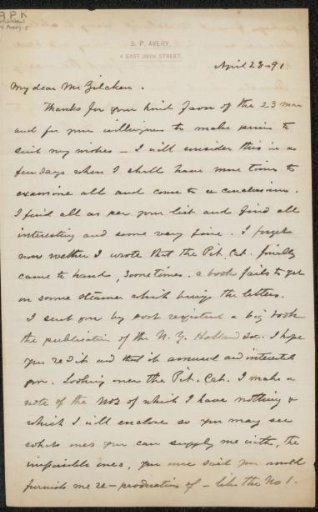 S. P. AVERY,
4 EAST 38TH STREET.
April 23-91
My dear Mr Zilcken.
Thanks for your kind favor of the 23
and for your willingness to make prices to
suit my wishes - I will consider this in a
few days when I shall have more time to
examine all and come to a conclusion.
I find all as per your list and find all
interesting and some very fine. I forget
now wether I wrote that the Pit. Cat. finally
came to hand, sometimes a book fails to get
on some steamer which brings the letters.
I sent you by post registered a big book
the publication of the N. Y. Holland Soc. I hope
you recd it and that it amused and interested
you. Looking over the Pit. Cat. I make a
note of the Nos of which I have nothing &
which I will enclose so you may see
what ones you can supply me with, the
impossible ones, you once said you would
furnish me re-production of - like the No 1.